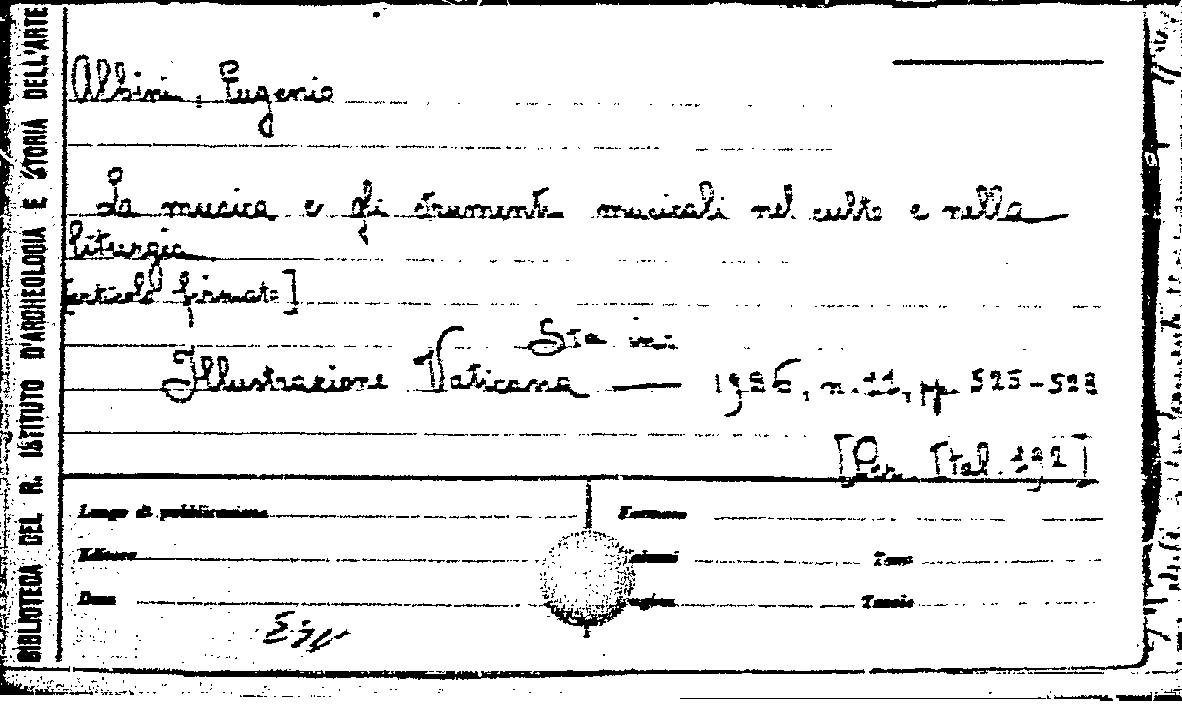 BIBLIOTECA DEL R. ISTITUTO D'ARCHEOLOGIA E STORIA DELL'ARTE
Albini, Eugenio
La musica e gli strumenti musicali nel culto e nella
liturgia
[articolo firmato]
Sta in:
Illustrazione Vaticana — 1936, n. 11, pp. 525-528
[Per. Ital. 192]
Luogo di pubblicazione
Formato
Editore
Volumi
Tomi
Data
Pagine
Tavole